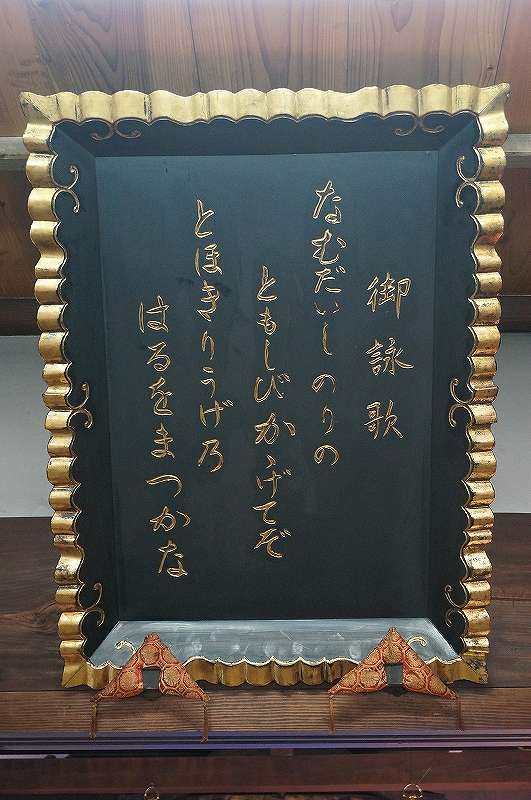 御詠歌
なむだいしのりの
ともしびかゝげてぞ
とほきりうげ乃
はるをまつかな